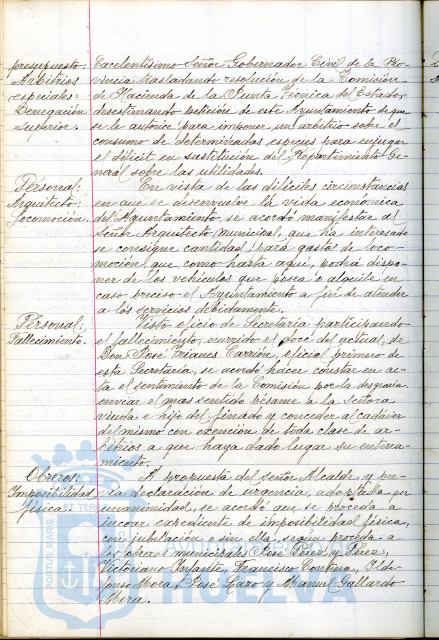 presupuesto: Excelentísimo Señor Gobernador Civil de la Pro-
Arbitrios vincia trasladando resolución de la Comisión
especiales: de Hacienda de la Junta Técnica del Estado,
Denegación desestimando petición de este Ayuntamiento de que
Superior. se le autorice para imponer un arbitrio sobre el
consumo de determinadas especies para enjugar
el déficit en sustitución del Repartimiento Ge-
neral sobre las utilidades.
Personal: En vista de las difíciles circunstancias
Arquitecto: en que se desenvuelve la vida económica
Locomoción. del Ayuntamiento, se acordó manifestar al
Señor Arquitecto municipal, que ha interesado
se consigne cantidad para gastos de loco-
moción, que como hasta aquí, podrá dispo-
ner de los vehículos que posea o alquile en
caso preciso el Ayuntamiento a fin de atender
a los servicios debidamente.
Personal: Visto oficio de Secretaría participando
Fallecimiento. el fallecimiento, ocurrido el doce del actual, de
Don José Trianes Carrión, oficial primero de
esta Secretaría, se acordó hacer constar en ac-
ta el sentimiento de la Comisión por la desgracia,
enviar el mas sentido pésame a la señora
viuda e hijo del finado y conceder al cadáver
del mismo con exención de toda clase de ar-
bitrios a que haya dado lugar su enterra-
miento.
Obreros: A propuesta del señor Alcalde y pre-
Imposibilidad via declaración de urgencia, adoptada por
física: unanimidad, se acordó que se proceda a
incoar expediente de imposibilidad física,
con jubilación o sin ella, según proceda a
los obreros municipales José Pérez y Pérez,
Victoriano Infante, Francisco Contreras, Ilde-
fonso Mora, José Lazo y Manuel Gallardo
Mora.
PORTUS MARIS
HUELVA